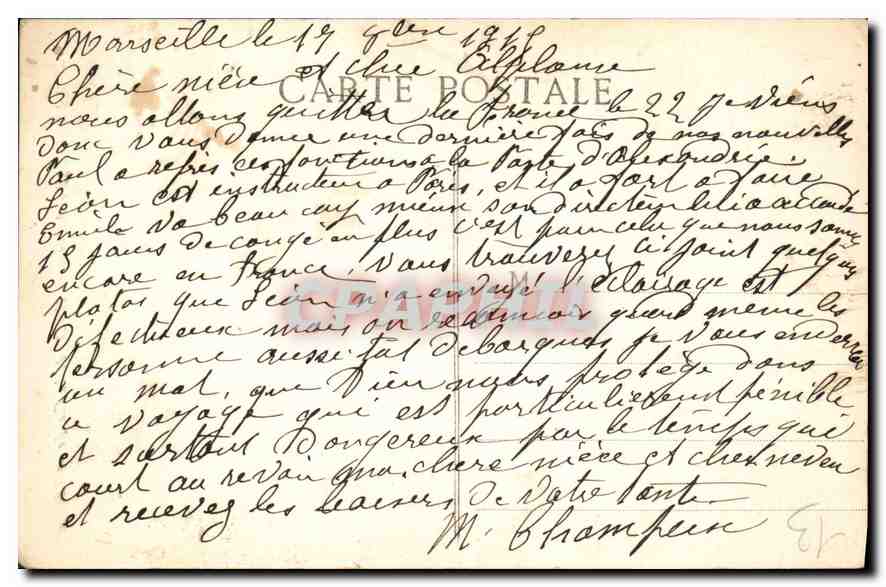 Marseille le 17 9bre 1915
Chère nièce et cher Alphonse
CARTE POSTALE
nous allons quitter la France le 22 je viens
donc vous donner une dernière fois de nos nouvelles
Paul a repris ces fonctions a la Poste d'Alexandrie.
Léon est instructeur a Paris, et il a fort a faire
Emile va beaucoup mieux son directeur lui a accordé
15 jours de congé en plus c'est pour cela que nous sommes
encore en France, vous trouverez ci joint quelques
photos que Léon m'a envoyé l'éclairage est
défectueux mais on reconnais quand meme les
personne aussitot debarqués je vous enverrai
un mot, que Dieu nous protège dans
ce voyage qui est particulierement pénible
et surtout dangereux par le temps qui
court au revoir ma chere nièce et cher neveu
et recevez les baisers de votre tante
M. Champeix
CPARAMA
13